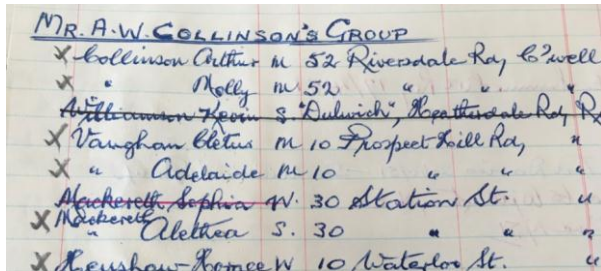 MR. A.W. COLLINSON'S GROUP
X Collinson Arthur M 52 Riversdale Rd, C'well
X " Molly M 52 " " "
Williamson Kevin S. "Dulwich", Heatherdale Rd, R
X Vaughan Cletus M 10 Prospect Hill Rd, "
X " Adelaide M 10 " " "
Mackereth, Sophia W. 30 Station St. "
X Mackereth " Alethea S. 30 " " "
X Henshaw-Horace W 10 Waterloo St. "